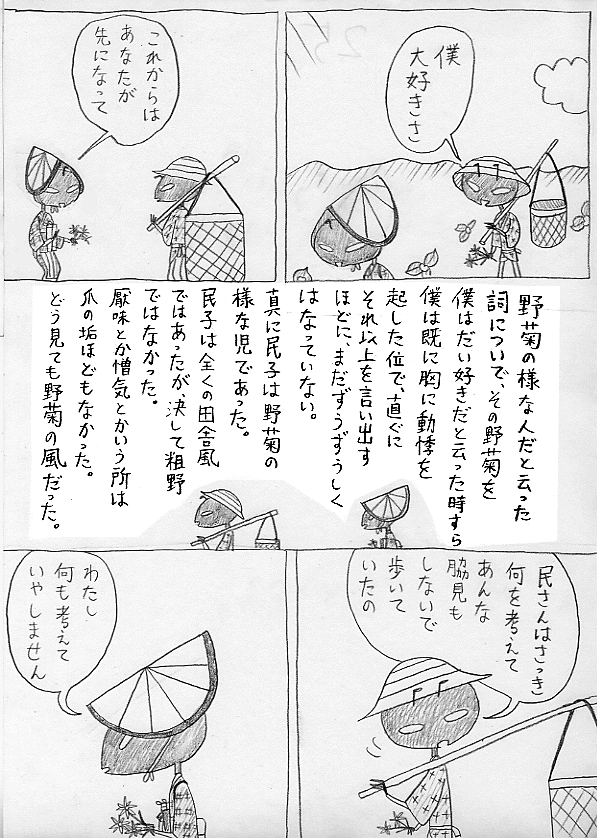 僕
大好きさ
これからは
あなたが
先になって
野菊の様な人だと云った
詞についで、その野菊を
僕はだい好きだと云った時すら
僕は既に胸に動悸を
起した位で、直ぐに
それ以上を言い出す
ほどに、まだずうずうしく
はなっていない。
真に民子は野菊の
様な児であった。
民子は全くの田舎風
ではあったが、決して粗野
ではなかった。
厭味とか憎気とかいう所は
爪の垢ほどもなかった。
どう見ても野菊の風だった。
民さんはさっき
何を考えて
あんな
脇見も
しないで
歩いて
いたの
わたし
何も考えて
いやしません